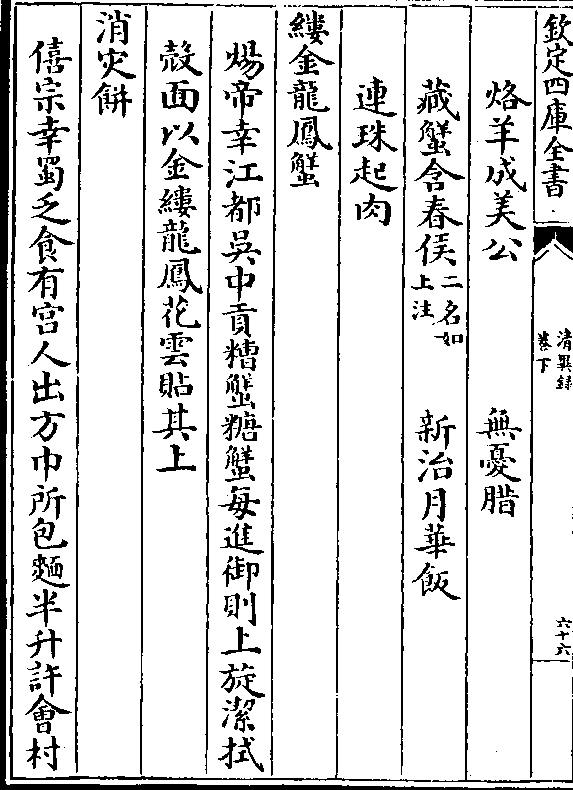 欽定四庫全書
清異錄
卷下
六十六
烙羊成美公 無憂腊
藏蟹含春侯 二名如上注 新治月華飯
連珠起肉
縷金龍鳳蟹
煬帝幸江都吳中貢糟蟹糖蟹每進御則上旋潔拭
殼面以金縷龍鳳花雲貼其上
消灾餅
僖宗幸蜀乏食有宮人出方巾所包麵半升許會村